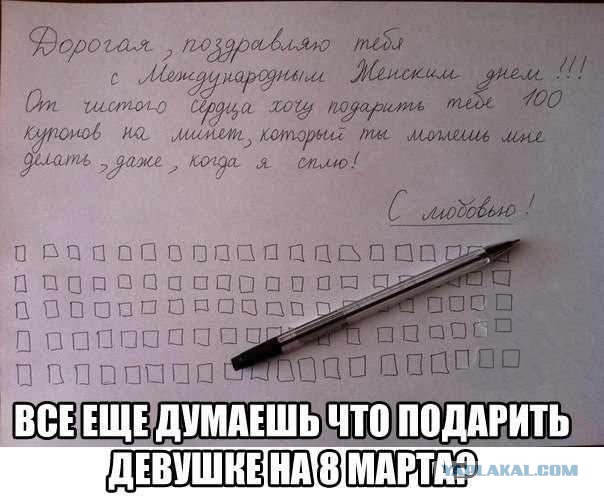 Дорогая, поздравляю тебя
с Международным Женским днем!!!
От чистого сердца хочу подарить тебе 100
купонов на минет, который ты можешь мне
делать, даже, когда я сплю!
С любовью!
ВСЕ ЕЩЕ ДУМАЕШЬ ЧТО ПОДАРИТЬ
ДЕВУШКЕ НА 8 МАРТА?
YAPLAKAL.COM